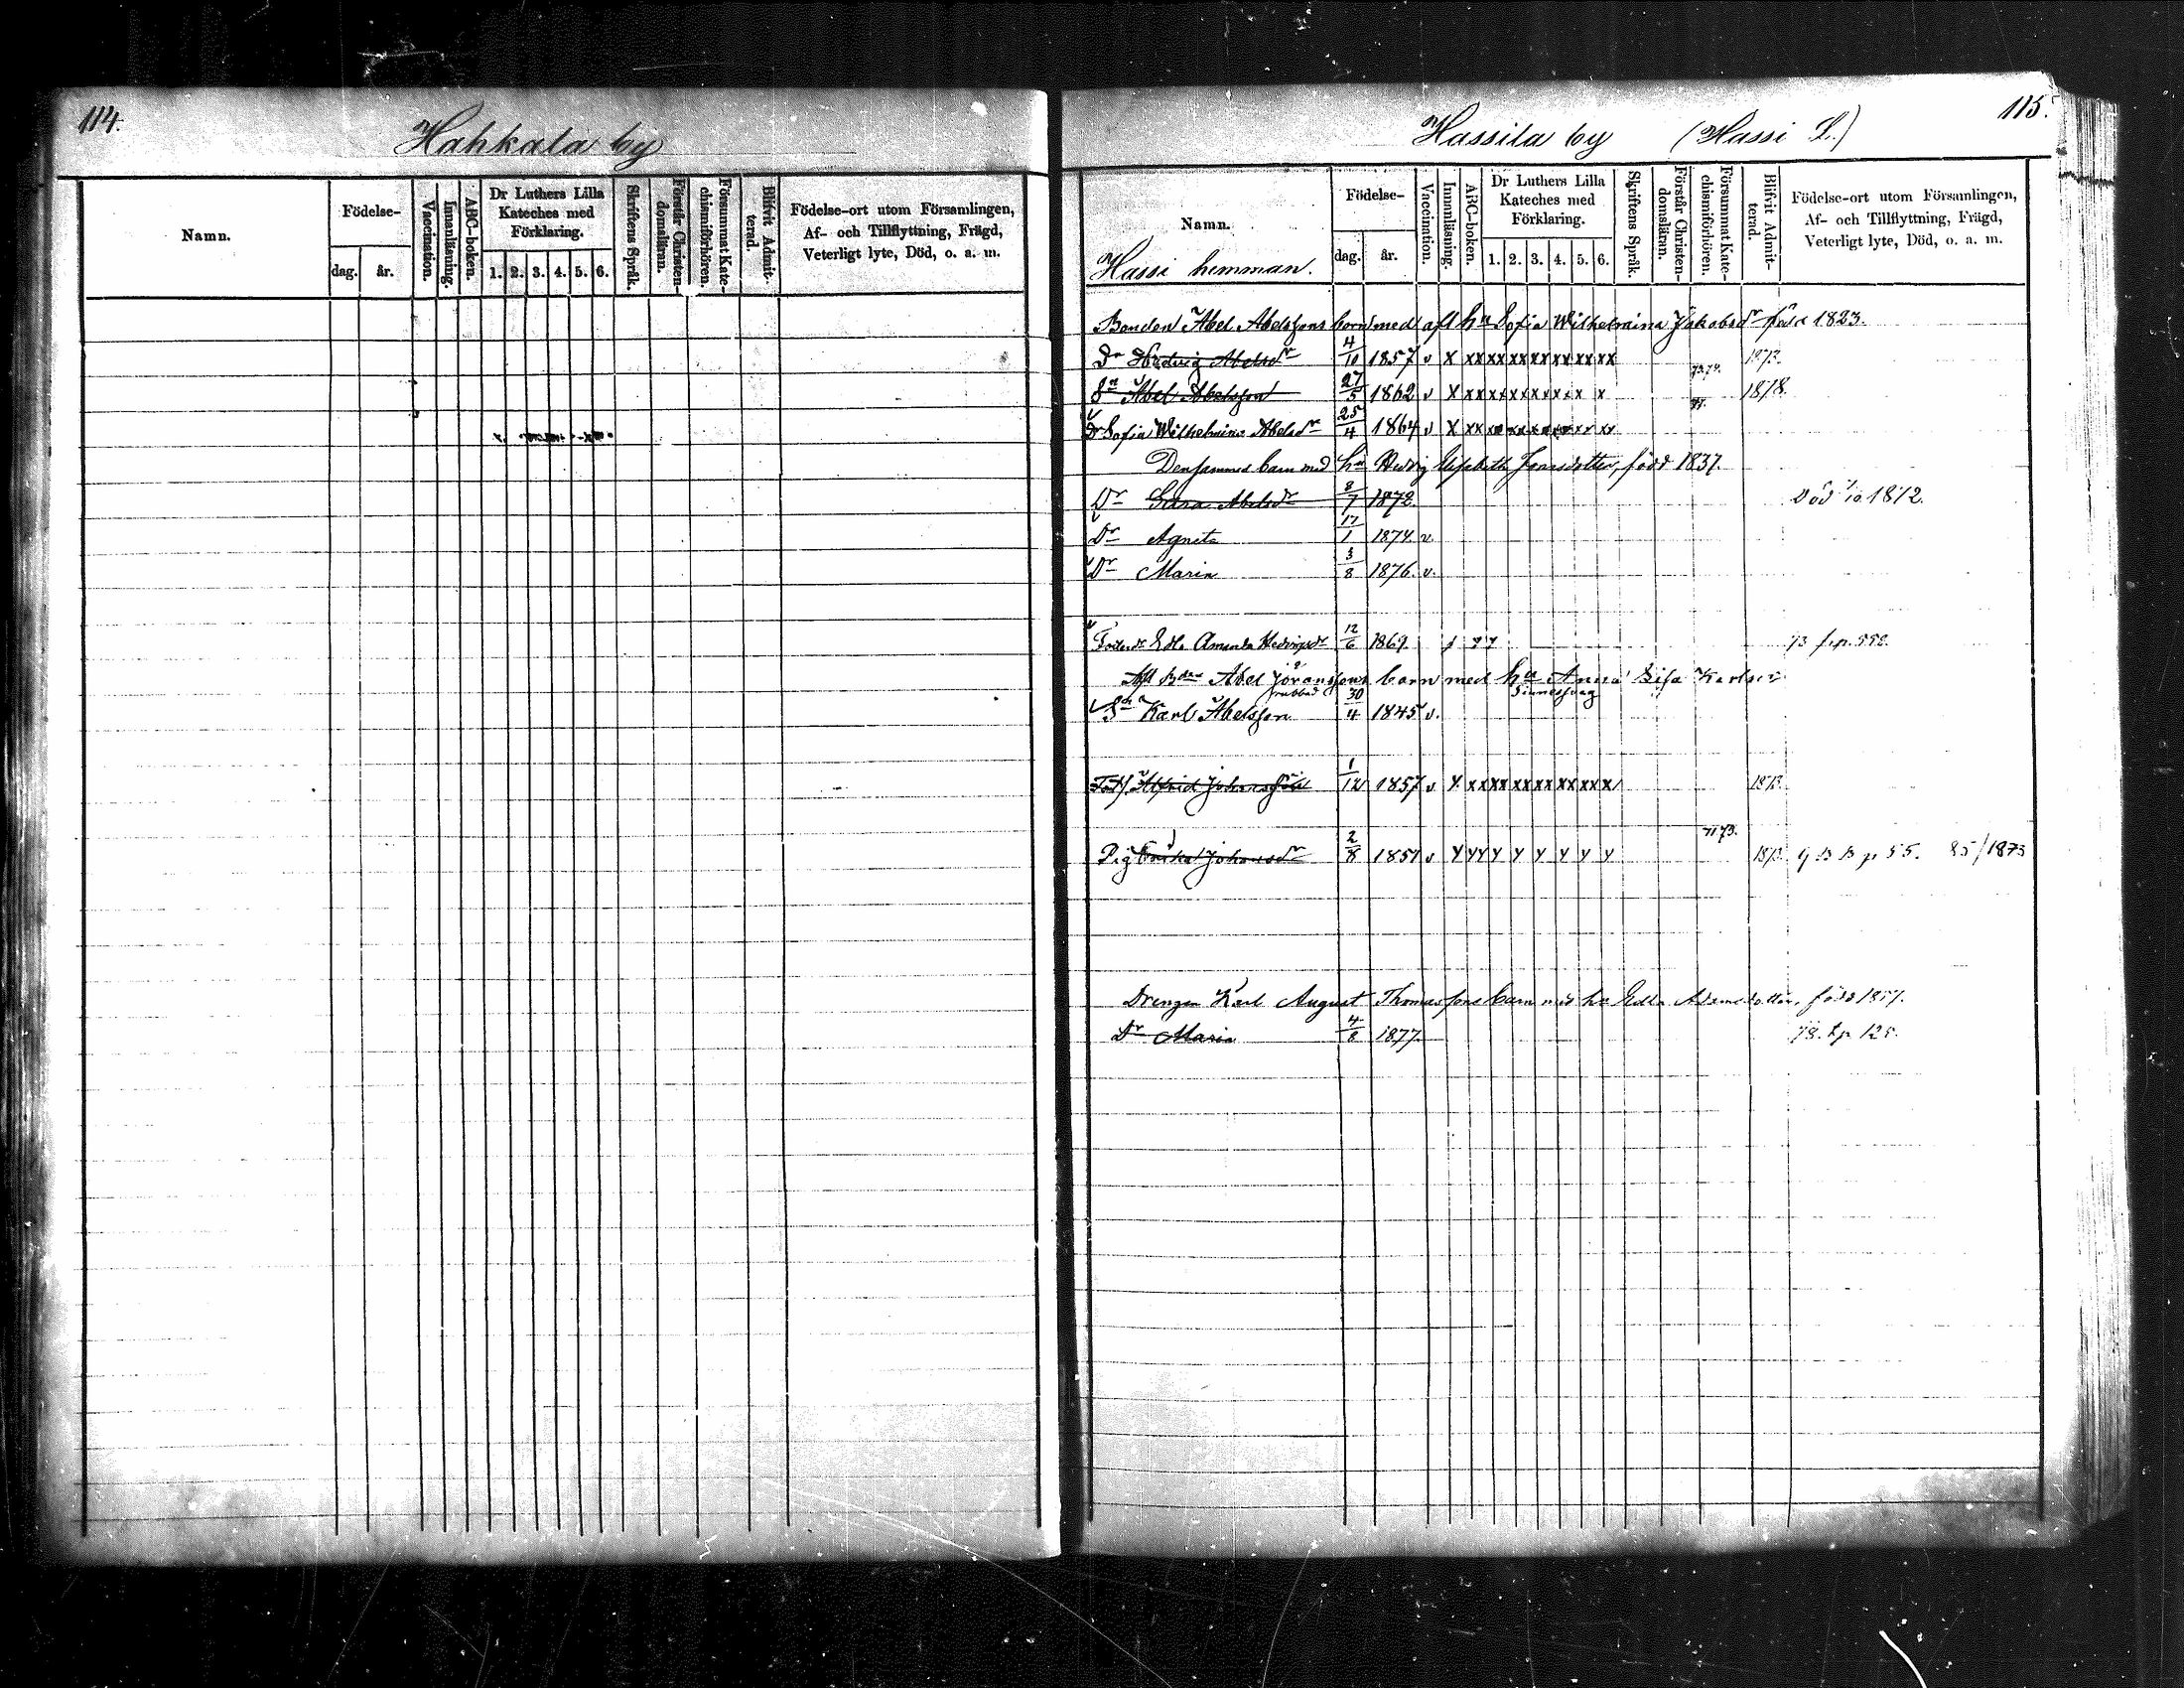 114.
Hahkala by
Namn.
Födelse-
dag. år.
Vaccination.
Innanläsning.
ABC-boken.
Dr Luthers Lilla
Kateches med
Förklaring.
1. 2. 3. 4. 5. 6.
Skriftens Språk.
Förstår Christen-
domsläran.
Försummat Kate-
chismiförhören.
Blifvit Admit-
terad.
Födelse-ort utom Församlingen,
Af- och Tillflyttning, Frägd,
Veterligt lyte, Död, o. a. m.
115.
Hassila by (Hassi L.)
Namn.
Hassi hemman.
Födelse-
dag. år.
Vaccination.
Innanläsning.
ABC-boken.
Dr Luthers Lilla
Kateches med
Förklaring.
1. 2. 3. 4. 5. 6.
Skriftens Språk.
Förstår Christen-
domsläran.
Försummat Kate-
chismiförhören.
Blifvit Admit-
terad.
Födelse-ort utom Församlingen,
Af- och Tillflyttning, Frägd,
Veterligt lyte, Död, o. a. m.
Bonden Abel Abelssons barn med afl hu Sofia Wilhelmina Jakobsdr född 1823.
Dr Hedvig Abelsdr 4/10 1857 v x xx xx xx xx xx xx xx 1873.
Sn Abel Abelsson 27/5 1862 v x xx xx xx xx xx x x 1878.
Dr Sofia Wilhelmina Abelsdr 25/4 1864 v x xx xx xx xx xx xx xx
Densammes barn med hu Hedvig Elisabeth Jonasdotter, född 1837.
Dr Abelsdr 8/7 1872. Död 1872.
Dr Agneta 17/1 1874 v.
Dr Maria 3/8 1876. v.
Edla Amanda Hedvigsdr 12/6 1869. 73 fr p. 552.
Afl Bden Abel Jöranssons barn med hu Anna Lisa Karlsdr
Sn Karl Abelsson 30/4 1845 v.
Alfrid Johansson 1/12 1857 v x xx xx xx xx xx xx x 1873.
71 73.
Pig Johansdr 2/8 1851 v y yy y y y y y y 1873. p 55. 85/1873
Drengen Karl August Thomassons barn med hu Edla Adamsdotter, född 1851.
Dr Maria 4/8 1877. 78. t p. 125.